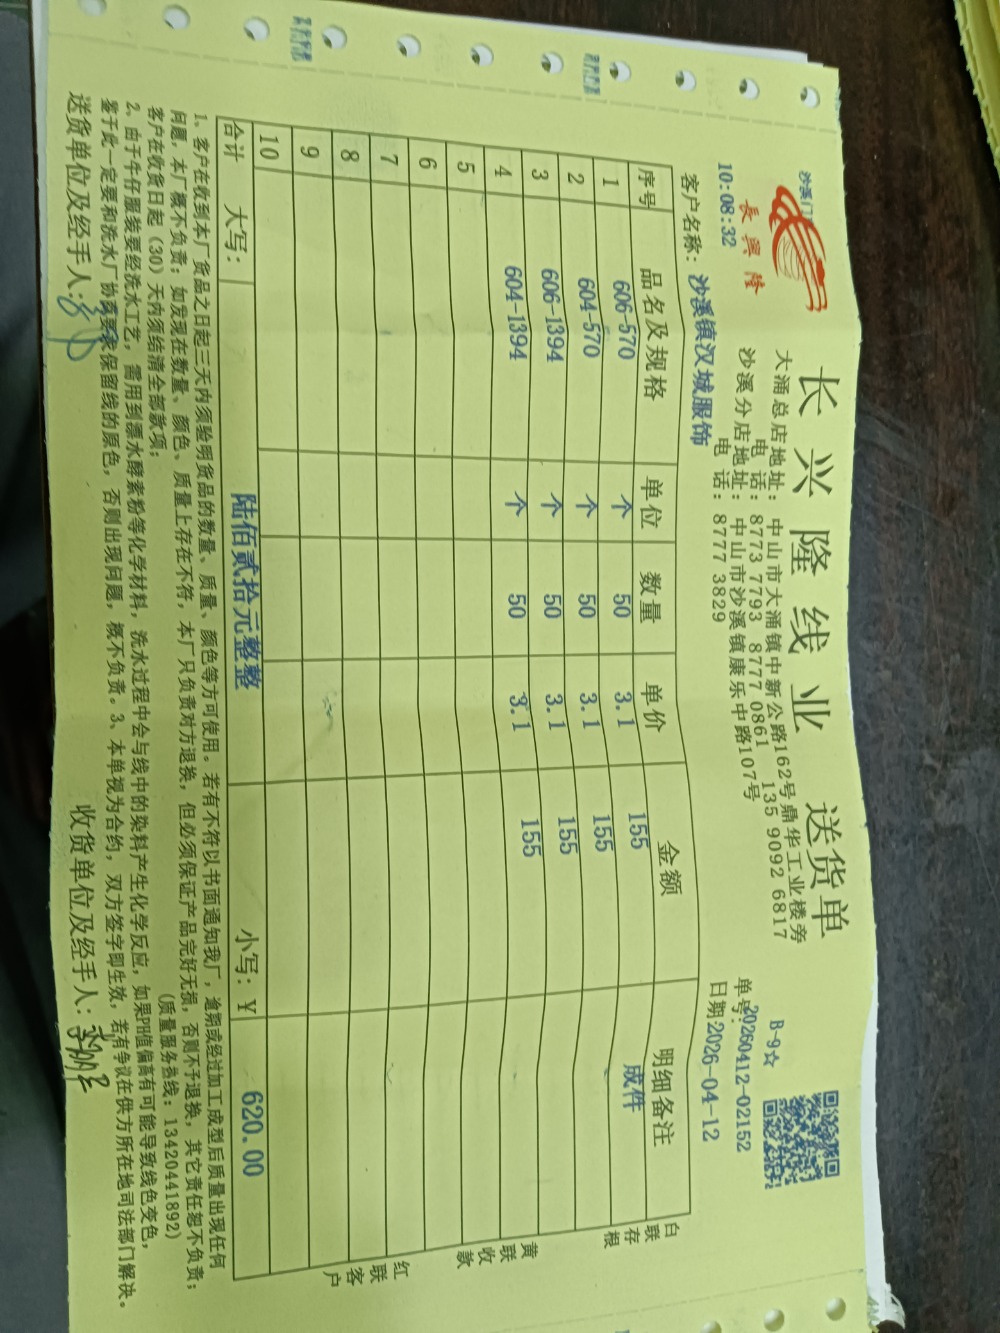 沙溪门
長興隆
长兴隆线业 送货单
大涌总店地址：中山市大涌镇中新公路162号鼎华工业楼旁
电话：8773 7793 8777 0861 135 9092 6817
沙溪分店地址：中山市沙溪镇康乐中路107号
电话：8777 3829
10:08:32
B-9☆
单号：20260412-02152
日期 2026-04-12
客户名称：沙溪镇汉城服饰
序号 品名及规格 单位 数量 单价 金额 明细备注
1 606-570 个 50 3.1 155 成件
2 604-570 个 50 3.1 155
3 606-1394 个 50 3.1 155
4 604-1394 个 50 3.1 155
5
6
7
8
9
10
合计 大写： 陆佰贰拾元整整 小写：¥ 620.00
白联存根
黄联收款
红联客户
1、客户在收到本厂货品之日起三天内须验明货品的数量、质量、颜色等方可使用。若有不符以书面通知我厂，逾期或经过加工成型后质量出现任何
问题，本厂概不负责；如发现在数量、颜色、质量上存在不符，本厂只负责对方退换，但必须保证产品完好无损，否则不予退换，其它责任恕不负责；
客户在收货日起（30）天内须结清全部款项； (质量服务热线：13420441892)
2、由于牛仔服装要经洗水工艺，需用到漂水酵素粉等化学材料，洗水过程中会与线中的染料产生化学反应，如果PH值偏高有可能导致线色变色，
鉴于此一定要和洗水厂协商要求保留线的原色，否则出现问题，概不负责。3、本单视为合约，双方签字即生效，若有争议在供方所在地司法部门解决。
送货单位及经手人： 收货单位及经手人：